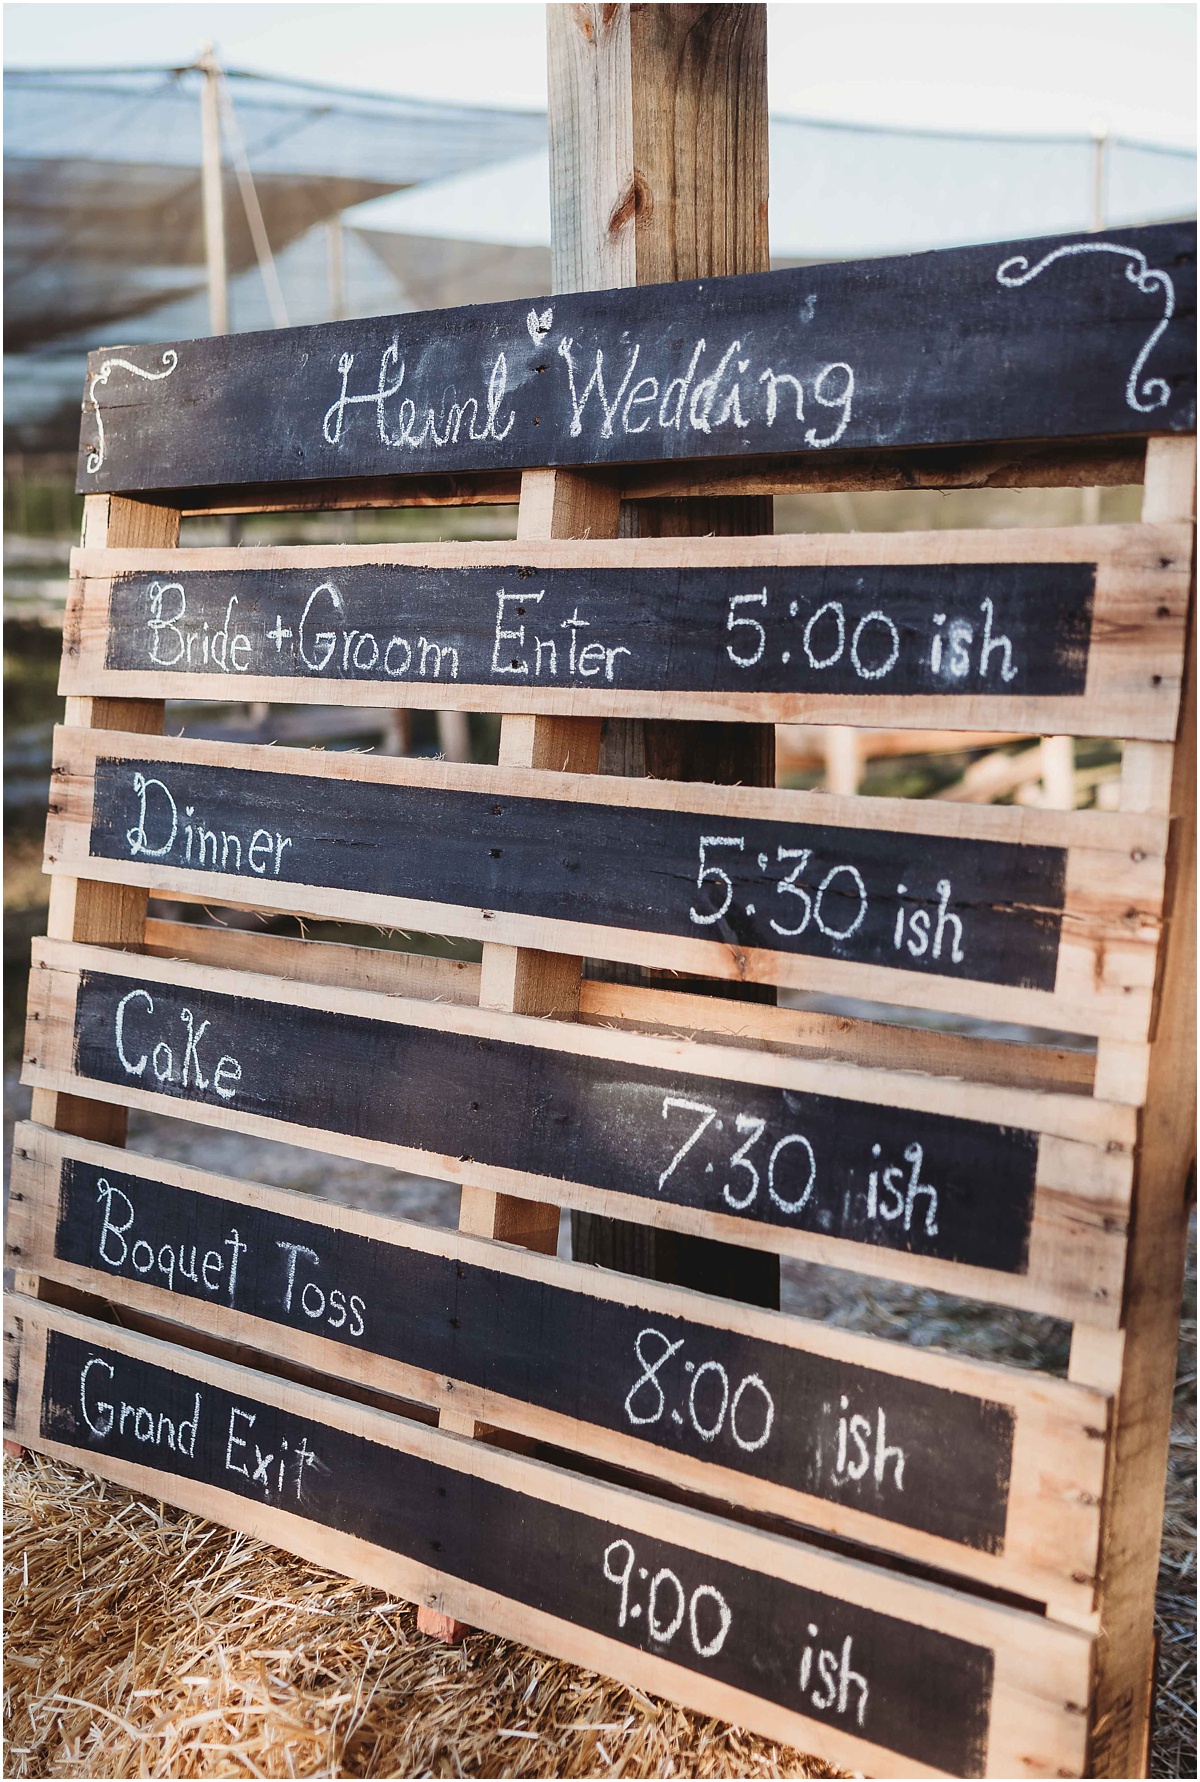 Heinl Wedding
Bride + Groom Enter 5:00 ish
Dinner 5:30 ish
Cake 7:30 ish
Boquet Toss 8:00 ish
Grand Exit 9:00 ish